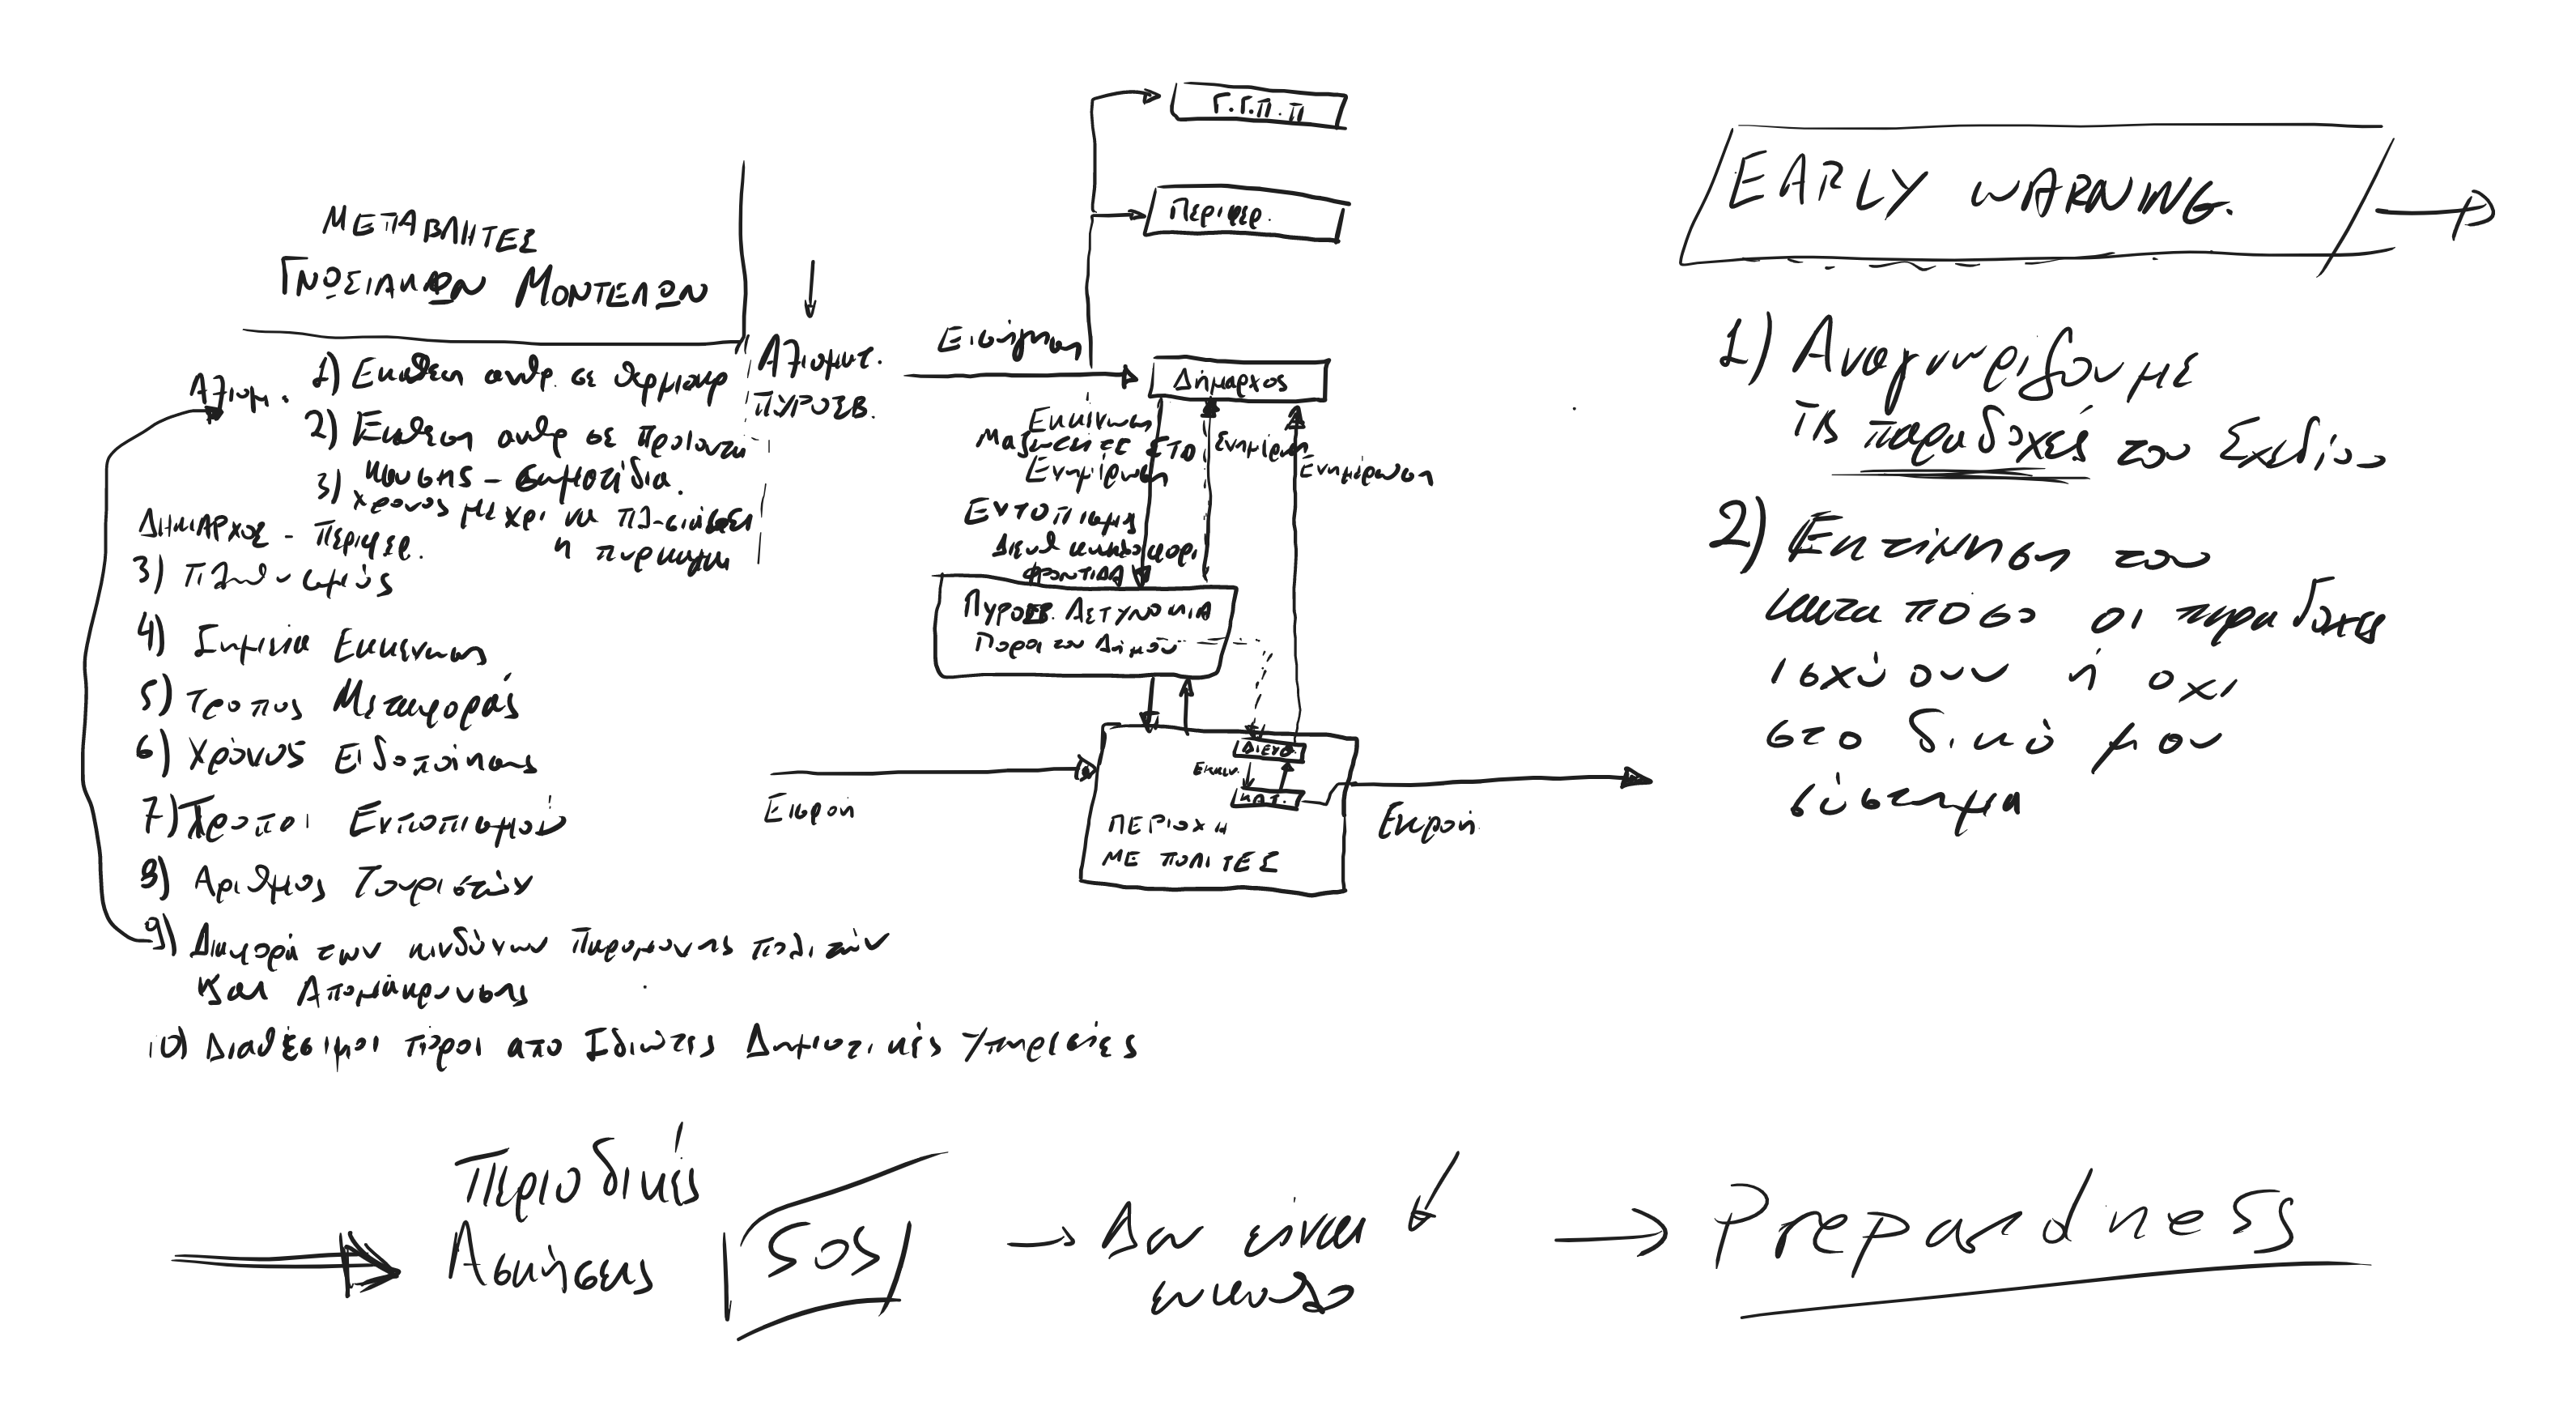 ΜΕΤΑΒΛΗΤΕΣ
ΓΝΩΣΙΑΚΩΝ ΜΟΝΤΕΛΩΝ
Αξιωμ.
1) Εκθεση ανθρ. σε θερμιακρ
2) Εκθεση ανθρ σε προϊοντα
καυσης - σωματίδια.
3) χρονος μεχρι να πλησιάσει
η πυρκαγια
ΔΗΜΑΡΧΟΣ - ΠΕΡΙΦΕΡ.
3) Πληθυσμός
4) Σημεία Εκκενωσης
5) Τροπος Μεταφοράς
6) Χρόνος Ειδοποίησης
7) Τροποι Εντοπισμού
8) Αριθμος Τουριστών
9) Διαφορά των κινδύνων παραμονης πολιτών
και Απομάκρυνσης
10) Διαθέσιμοι πόροι απο Ιδιώτες Δημοτικές Υπηρεσίες
Αξιωματ.
ΠΥΡΟΣΒ.
Γ.Γ.Π.Π
Περιφερ.
Εισήγηση
Δήμαρχος
Εκκένωση
Μαζωχτειτε ΣΤΟ
Ενημέρωση
Ενημέρωση
Ενημέρωση
Εντοπισμς
Διευθ κυκλοφορι
ΦΡΟΝΤΙΔΑ
ΠΥΡΟΣΒ. ΑΣΤΥΝΟΜΙΑ
Ποροι του Δήμου
Εισροή
ΔΙΕΥΘ.
Εκκεν.
ΚΑΤ.
ΠΕΡΙΟΧΗ
ΜΕ ΠΟΛΙΤΕΣ
Εκροή
EARLY WARNING.
1) Αναγνωρίζουμε
τις παραδοχές του Σχεδίου
2) Εκτίμηση του
κατα πόσο οι παραδοχες
ισχύουν ή οχι
στο δικό μου
σύστημα
Περιοδικές
Ασκήσεις
SOS
Δεν είναι
ευκολο
Prepardness